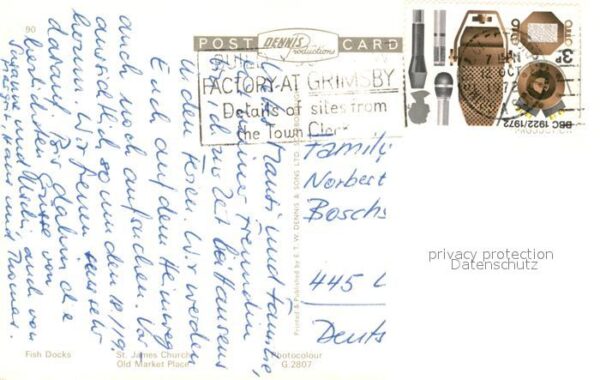 90
POST CARD
DENNIS
Productions
BUILD YOUR
FACTORY AT GRIMSBY
Details of sites from
the Town Clerk
7
12 OCT
3P
BBC 1922/1972
Familie
Norbert
Boschs
445 L
Deuts
privacy protection
Datenschutz
und Familie,
Freundin
Zeit bei Hausens
u. den Tieren. Wir werden
Euch auf dem Heimweg
auch noch aufsuchen. Vor
aussichtlich so um den 18./19.
herum. Wir freuen uns sehr
darauf. Bis dahin die
herzlichsten Grüsse von
Susanne und auch von
Hans und Thomas.
Printed & Published by E. T. W. DENNIS & SONS LTD
Fish Docks
St. James Church
Old Market Place
Photocolour
G.2807